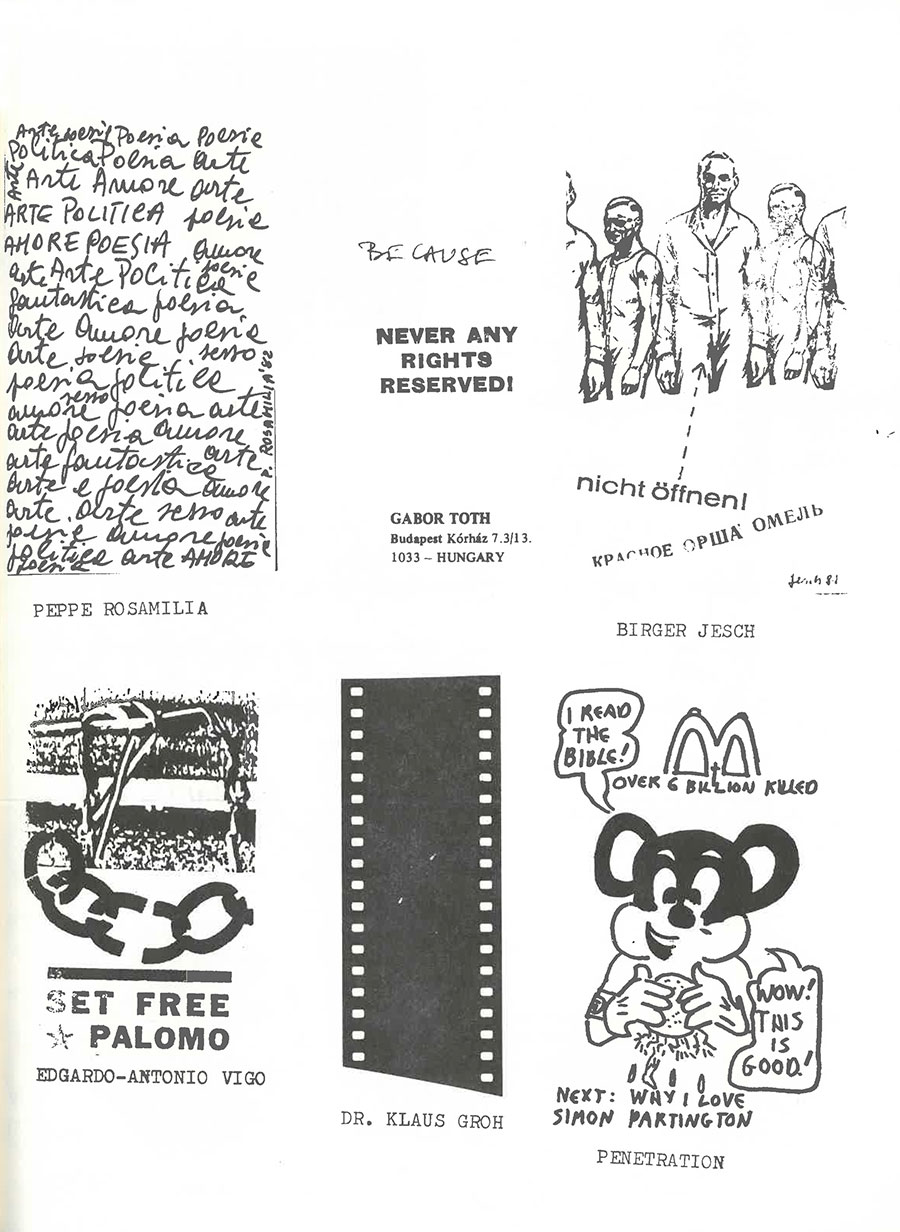 Arte poesie Poesia Poesie
Politica Poesia arte
Arte
Arte Amore arte
ARTE POLITICA poesie
AMORE POESIA amore
arte Arte POLitica poesie
fantastica poesia
arte amore poesie
arte poesie sesso
poesia politica
sesso
amore poesia arte
arte poesia amore
arte fantastica arte
arte e poesia amore
arte arte sesso arte
poesie amore poesie
politica arte AMORE
poesia
P. ROSAMILIA '82
PEPPE ROSAMILIA
BECAUSE
NEVER ANY
RIGHTS
RESERVED!
GABOR TOTH
Budapest Kórház 7.3/13.
1033 – HUNGARY
nicht öffnen!
КРАСНОЕ ОРША ОМЕЛЬ
Jesch 81
BIRGER JESCH
SET FREE
☆ PALOMO
EDGARDO-ANTONIO VIGO
DR. KLAUS GROH
I READ
THE
BIBLE!
OVER 6 BILLION KILLED
WOW!
THIS
IS
GOOD!
NEXT: WHY I LOVE
SIMON PARTINGTON
PENETRATION